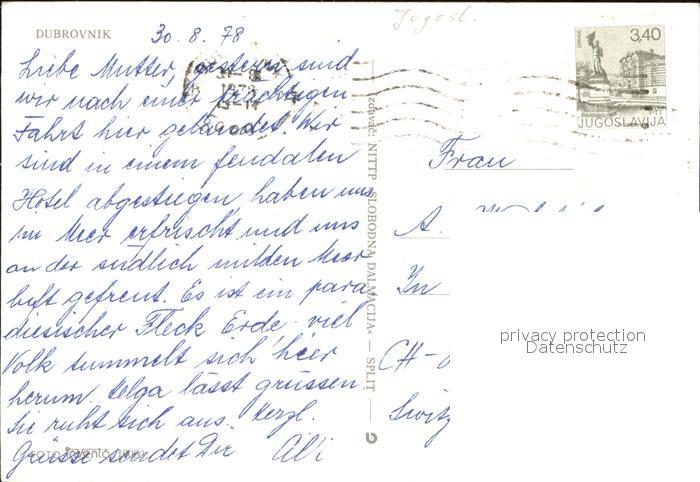 DUBROVNIK
30. 8. 78
Jugosl.
3,40
JUGOSLAVIJA
Liebe Mutter, gestern sind
wir nach einer prächtigen
Fahrt hier gelandet. Wir
sind in einem feudalen
Hotel abgestiegen, haben uns
im Meer erfrischt und uns
an der südlich milden Meer
luft gefreut. Es ist ein para
diesischer Fleck Erde. viel
Volk tummelt sich hier
herum. Helga lässt grüssen.
Sie ruht sich aus. Herzl.
Grüsse sendet Dir
FOTO
Izdavač: NIŠTP »SLOBODNA DALMACIJA« — SPLIT —
Frau
A.
In
CH-
privacy protection
Datenschutz